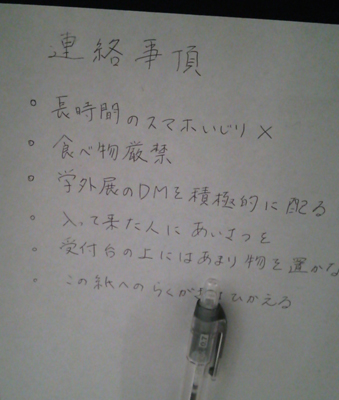 連絡事項
・長時間のスマホいじり ×
・食べ物厳禁
・学外展のDMを積極的に配る
・入って来た人にあいさつを
・受付台の上にはあまり物を置かな
・この紙へのらくがきはひかえる